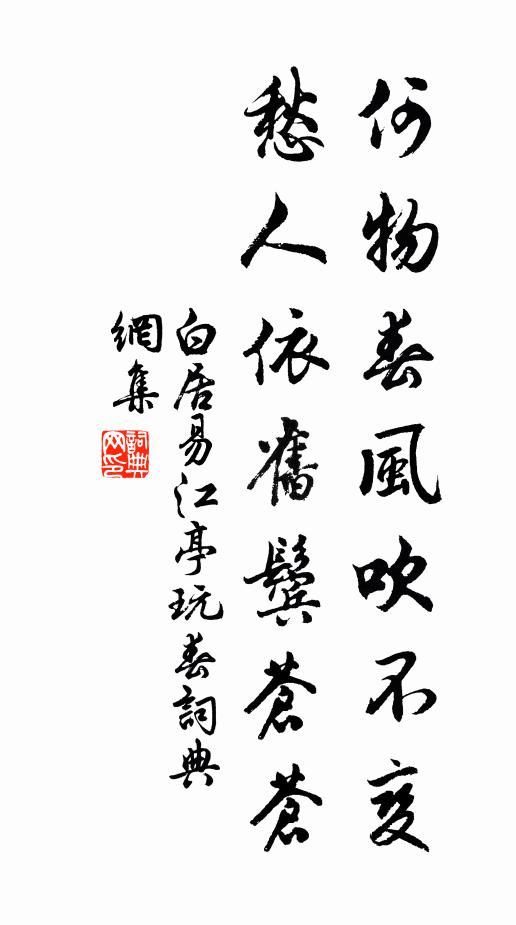 何物春風吹不變
愁人依舊鬢蒼蒼
白居易江亭玩春詞典
網集
詞典
网印